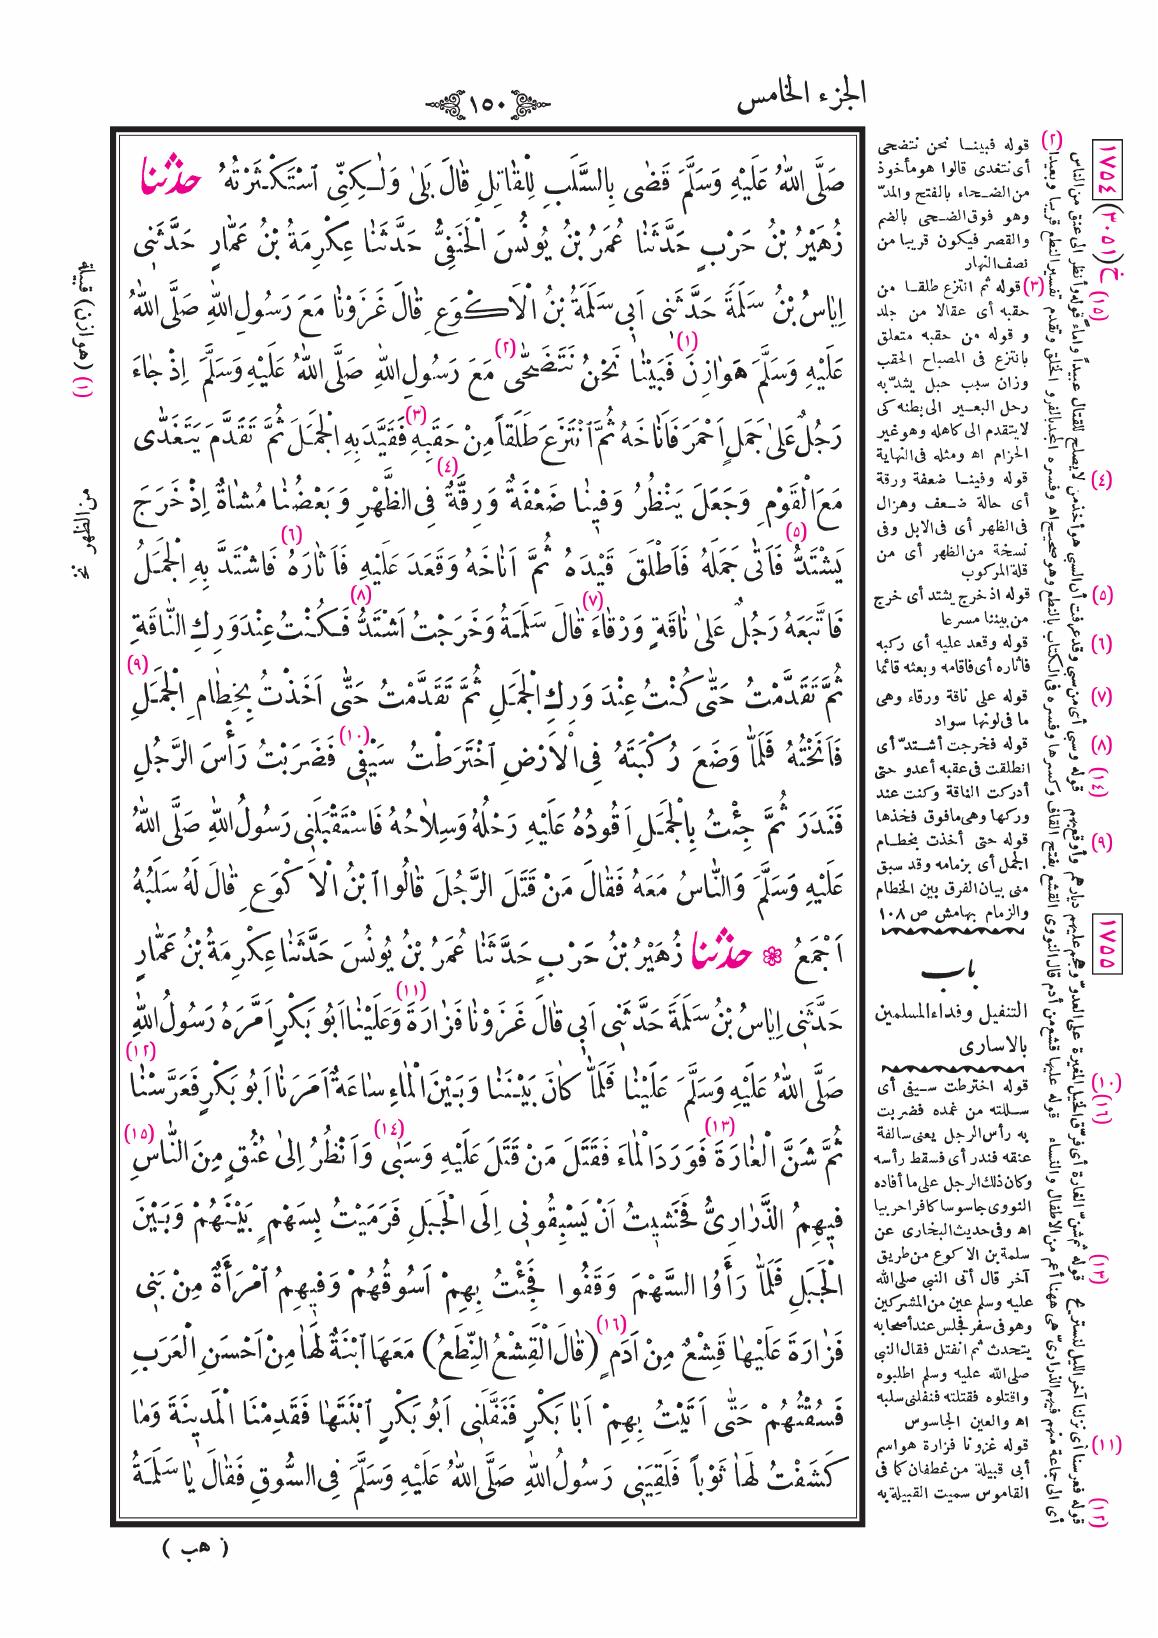 الجزء الخامس
١٥٠
صَلَّى اللهُ عَلَيْهِ وَسَلَّمَ قَضَى بِالسَّلَبِ لِلْقَاتِلِ قَالَ بَلَى وَلٰكِنِّى اسْتَكْثَرْتُهُ حدثنا
زُهَيْرُ بْنُ حَرْبٍ حَدَّثَنَا عُمَرُ بْنُ يُونُسَ الْحَنَفِىُّ حَدَّثَنَا عِكْرِمَةُ بْنُ عَمَّارٍ حَدَّثَنِى
اِيَاسُ بْنُ سَلَمَةَ حَدَّثَنِى اَبِى سَلَمَةُ بْنُ الْاَكْوَعِ قَالَ غَزَوْنَا مَعَ رَسُولِ اللهِ صَلَّى اللهُ
عَلَيْهِ وَسَلَّمَ هَوَازِنَ (١) فَبَيْنَا نَحْنُ نَتَضَحَّى (٢) مَعَ رَسُولِ اللهِ صَلَّى اللهُ عَلَيْهِ وَسَلَّمَ اِذْ جَاءَ
رَجُلٌ عَلَى جَمَلٍ اَحْمَرَ فَاَنَاخَهُ ثُمَّ انْتَزَعَ طَلَقاً مِنْ حَقَبِهِ (٣) فَقَيَّدَ بِهِ الْجَمَلَ ثُمَّ تَقَدَّمَ يَتَغَدَّى
مَعَ الْقَوْمِ وَجَعَلَ يَنْظُرُ وَفِينَا ضَعْفَةٌ وَرِقَّةٌ (٤) فِى الظَّهْرِ وَبَعْضُنَا مُشَاةٌ اِذْ خَرَجَ
يَشْتَدُّ (٥) فَاَتَى جَمَلَهُ فَاَطْلَقَ قَيْدَهُ ثُمَّ اَنَاخَهُ وَقَعَدَ عَلَيْهِ فَاَثَارَهُ (٦) فَاشْتَدَّ بِهِ الْجَمَلُ
فَاتَّبَعَهُ رَجُلٌ عَلَى نَاقَةٍ وَرْقَاءَ (٧) قَالَ سَلَمَةُ وَخَرَجْتُ اَشْتَدُّ (٨) فَكُنْتُ عِنْدَ وَرِكِ النَّاقَةِ
ثُمَّ تَقَدَّمْتُ حَتَّى كُنْتُ عِنْدَ وَرِكِ الْجَمَلِ ثُمَّ تَقَدَّمْتُ حَتَّى اَخَذْتُ بِخِطَامِ الْجَمَلِ (٩)
فَاَنَخْتُهُ فَلَمَّا وَضَعَ رُكْبَتَهُ فِى الْاَرْضِ اخْتَرَطْتُ سَيْفِى (١٠) فَضَرَبْتُ رَأْسَ الرَّجُلِ
فَنَدَرَ ثُمَّ جِئْتُ بِالْجَمَلِ اَقُودُهُ عَلَيْهِ رَحْلُهُ وَسِلَاحُهُ فَاسْتَقْبَلَنِى رَسُولُ اللهِ صَلَّى اللهُ
عَلَيْهِ وَسَلَّمَ وَالنَّاسُ مَعَهُ فَقَالَ مَنْ قَتَلَ الرَّجُلَ قَالُوا ابْنُ الْاَكْوَعِ قَالَ لَهُ سَلَبُهُ
اَجْمَعُ حدثنا زُهَيْرُ بْنُ حَرْبٍ حَدَّثَنَا عُمَرُ بْنُ يُونُسَ حَدَّثَنَا عِكْرِمَةُ بْنُ عَمَّارٍ
حَدَّثَنِى اِيَاسُ بْنُ سَلَمَةَ حَدَّثَنِى اَبِى قَالَ غَزَوْنَا فَزَارَةَ (١١) وَعَلَيْنَا اَبُو بَكْرٍ اَمَّرَهُ رَسُولُ اللهِ
صَلَّى اللهُ عَلَيْهِ وَسَلَّمَ عَلَيْنَا فَلَمَّا كَانَ بَيْنَنَا وَبَيْنَ الْمَاءِ سَاعَةٌ اَمَرَنَا اَبُو بَكْرٍ فَعَرَّسْنَا (١٢)
ثُمَّ شَنَّ الْغَارَةَ (١٣) فَوَرَدَ الْمَاءَ فَقَتَلَ مَنْ قَتَلَ عَلَيْهِ وَسَبَى (١٤) وَاَنْظُرُ اِلَى عُنُقٍ مِنَ النَّاسِ (١٥)
فِيهِمُ الذَّرَارِىُّ فَخَشِيتُ اَنْ يَسْبِقُونِى اِلَى الْجَبَلِ فَرَمَيْتُ بِسَهْمٍ بَيْنَهُمْ وَبَيْنَ
الْجَبَلِ فَلَمَّا رَأَوُا السَّهْمَ وَقَفُوا فَجِئْتُ بِهِمْ اَسُوقُهُمْ وَفِيهِمُ امْرَأَةٌ مِنْ بَنِى
فَزَارَةَ عَلَيْهَا قَشْعٌ مِنْ اَدَمٍ (١٦) (قَالَ الْقَشْعُ النِّطَعُ) مَعَهَا ابْنَةٌ لَهَا مِنْ اَحْسَنِ الْعَرَبِ
فَسُقْتُهُمْ حَتَّى اَتَيْتُ بِهِمْ اَبَا بَكْرٍ فَنَفَّلَنِى اَبُو بَكْرٍ ابْنَتَهَا فَقَدِمْنَا الْمَدِينَةَ وَمَا
كَشَفْتُ لَهَا ثَوْباً فَلَقِيَنِى رَسُولُ اللهِ صَلَّى اللهُ عَلَيْهِ وَسَلَّمَ فِى السُّوقِ فَقَالَ يَا سَلَمَةُ
( هب )
(١) (هوازن) قبيلة
من الظهر نخ
١٧٥٤
(٣٠٥١) خ
(٢) قوله فبينـا نحن نتضحى
أى نتغدى قالوا هو مأخوذ
من الضحاء بالفتح والمدّ
وهو فوق الضحى بالضم
والقصر فيكون قريبا من
نصف النهار
(٣) قوله ثم انتزع طلقـا من
حقبه أى عقالا من جلد
و قوله من حقبه متعلق
بانتزع فى المصباح الحقب
وزان سبب حبل يشدّ به
رحل البعـير الى بطنه كى
لا يتقدم الى كاهله وهو غير
الحزام اه ومثله فى النهاية
(٤) قوله وفينـا ضعفة ورقة
أى حالة ضعف وهزال
فى الظهر أى فى الابل وفى
نسخة من الظهر أى من
قلة المركوب
(٥) قوله اذ خرج يشتد أى خرج
من بيننا مسرعا
(٦) قوله وقعد عليه أى ركبه
فاثاره أى فاقامه وبعثه قائما
(٧) قوله على ناقة ورقاء وهى
ما فى لونها سواد
(٨) قوله فخرجت أشـتدّ أى
انطلقت فى عقبه أعدو حتى
أدركت الناقة وكنت عند
وركها وهى مافوق فخذها
(٩) قوله حتى أخذت بخطـام
الجمل أى بزمامه وقد سبق
منى بيان الفرق بين الخطام
والزمام بهامش ص ١٠٨
١٧٥٥
باب
التنفيل وفداء المسلمين
بالاسارى
(١٠) قوله اخترطت سـيفى أى
سـللته من غمده فضربت
به رأس الرجل يعنى سالفة
عنقه فندر أى فسقط رأسه
وكان ذلك الرجل على ما أفاده
النووى جاسوسا كافرا حربيا
اه وفى حديث البخارى عن
سلمة بن الاكوع من طريق
آخر قال أتى النبي صلى الله
عليه وسلم عين من المشركين
وهو فى سفر فجلس عند أصحابه
يتحدث ثم انفتل فقال النبي
صلى الله عليه وسلم اطلبوه
واقتلوه فقتلته فنفلنى سلبه
اه والعين الجاسوس
(١١) قوله غزونا فزارة هو اسم
أبى قبيلة من غطفان كما فى
القاموس سميت القبيلة به
(١٢) قوله فعرسنا أى نزلنا آخر الليل لنستريح (١٣) قوله ثم شنّ الغارة أى فرّق الخيل المغيرة على العدوّ وهجم عليهم ديارهم وأوقع بهم (١٤) قوله وسبى أى من سبى وقد عرفت أن السبى هو أخذ من لا يصلح للقتال عبيداً واماءً (١٥) قوله وأنظر الى عنق من الناس
أى الى جماعة منهم فيهم الذرارىّ هى ههنا أعم من الاطفال والنساء (١٦) قوله عليها قشع من أدم قال النووى القشع بفتح القاف وكسرها وفسره فى الكتاب بالنطع وهو صحيح اه وفسره المجد بالفرو الخلق وتقدم تفسير النطع قريبا وبعيدا